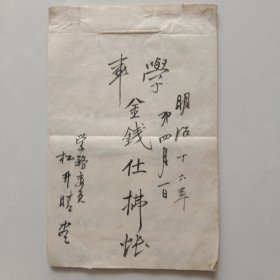 明治十六年
第四月一日
學事
金錢仕拂帳
学務委員
松井